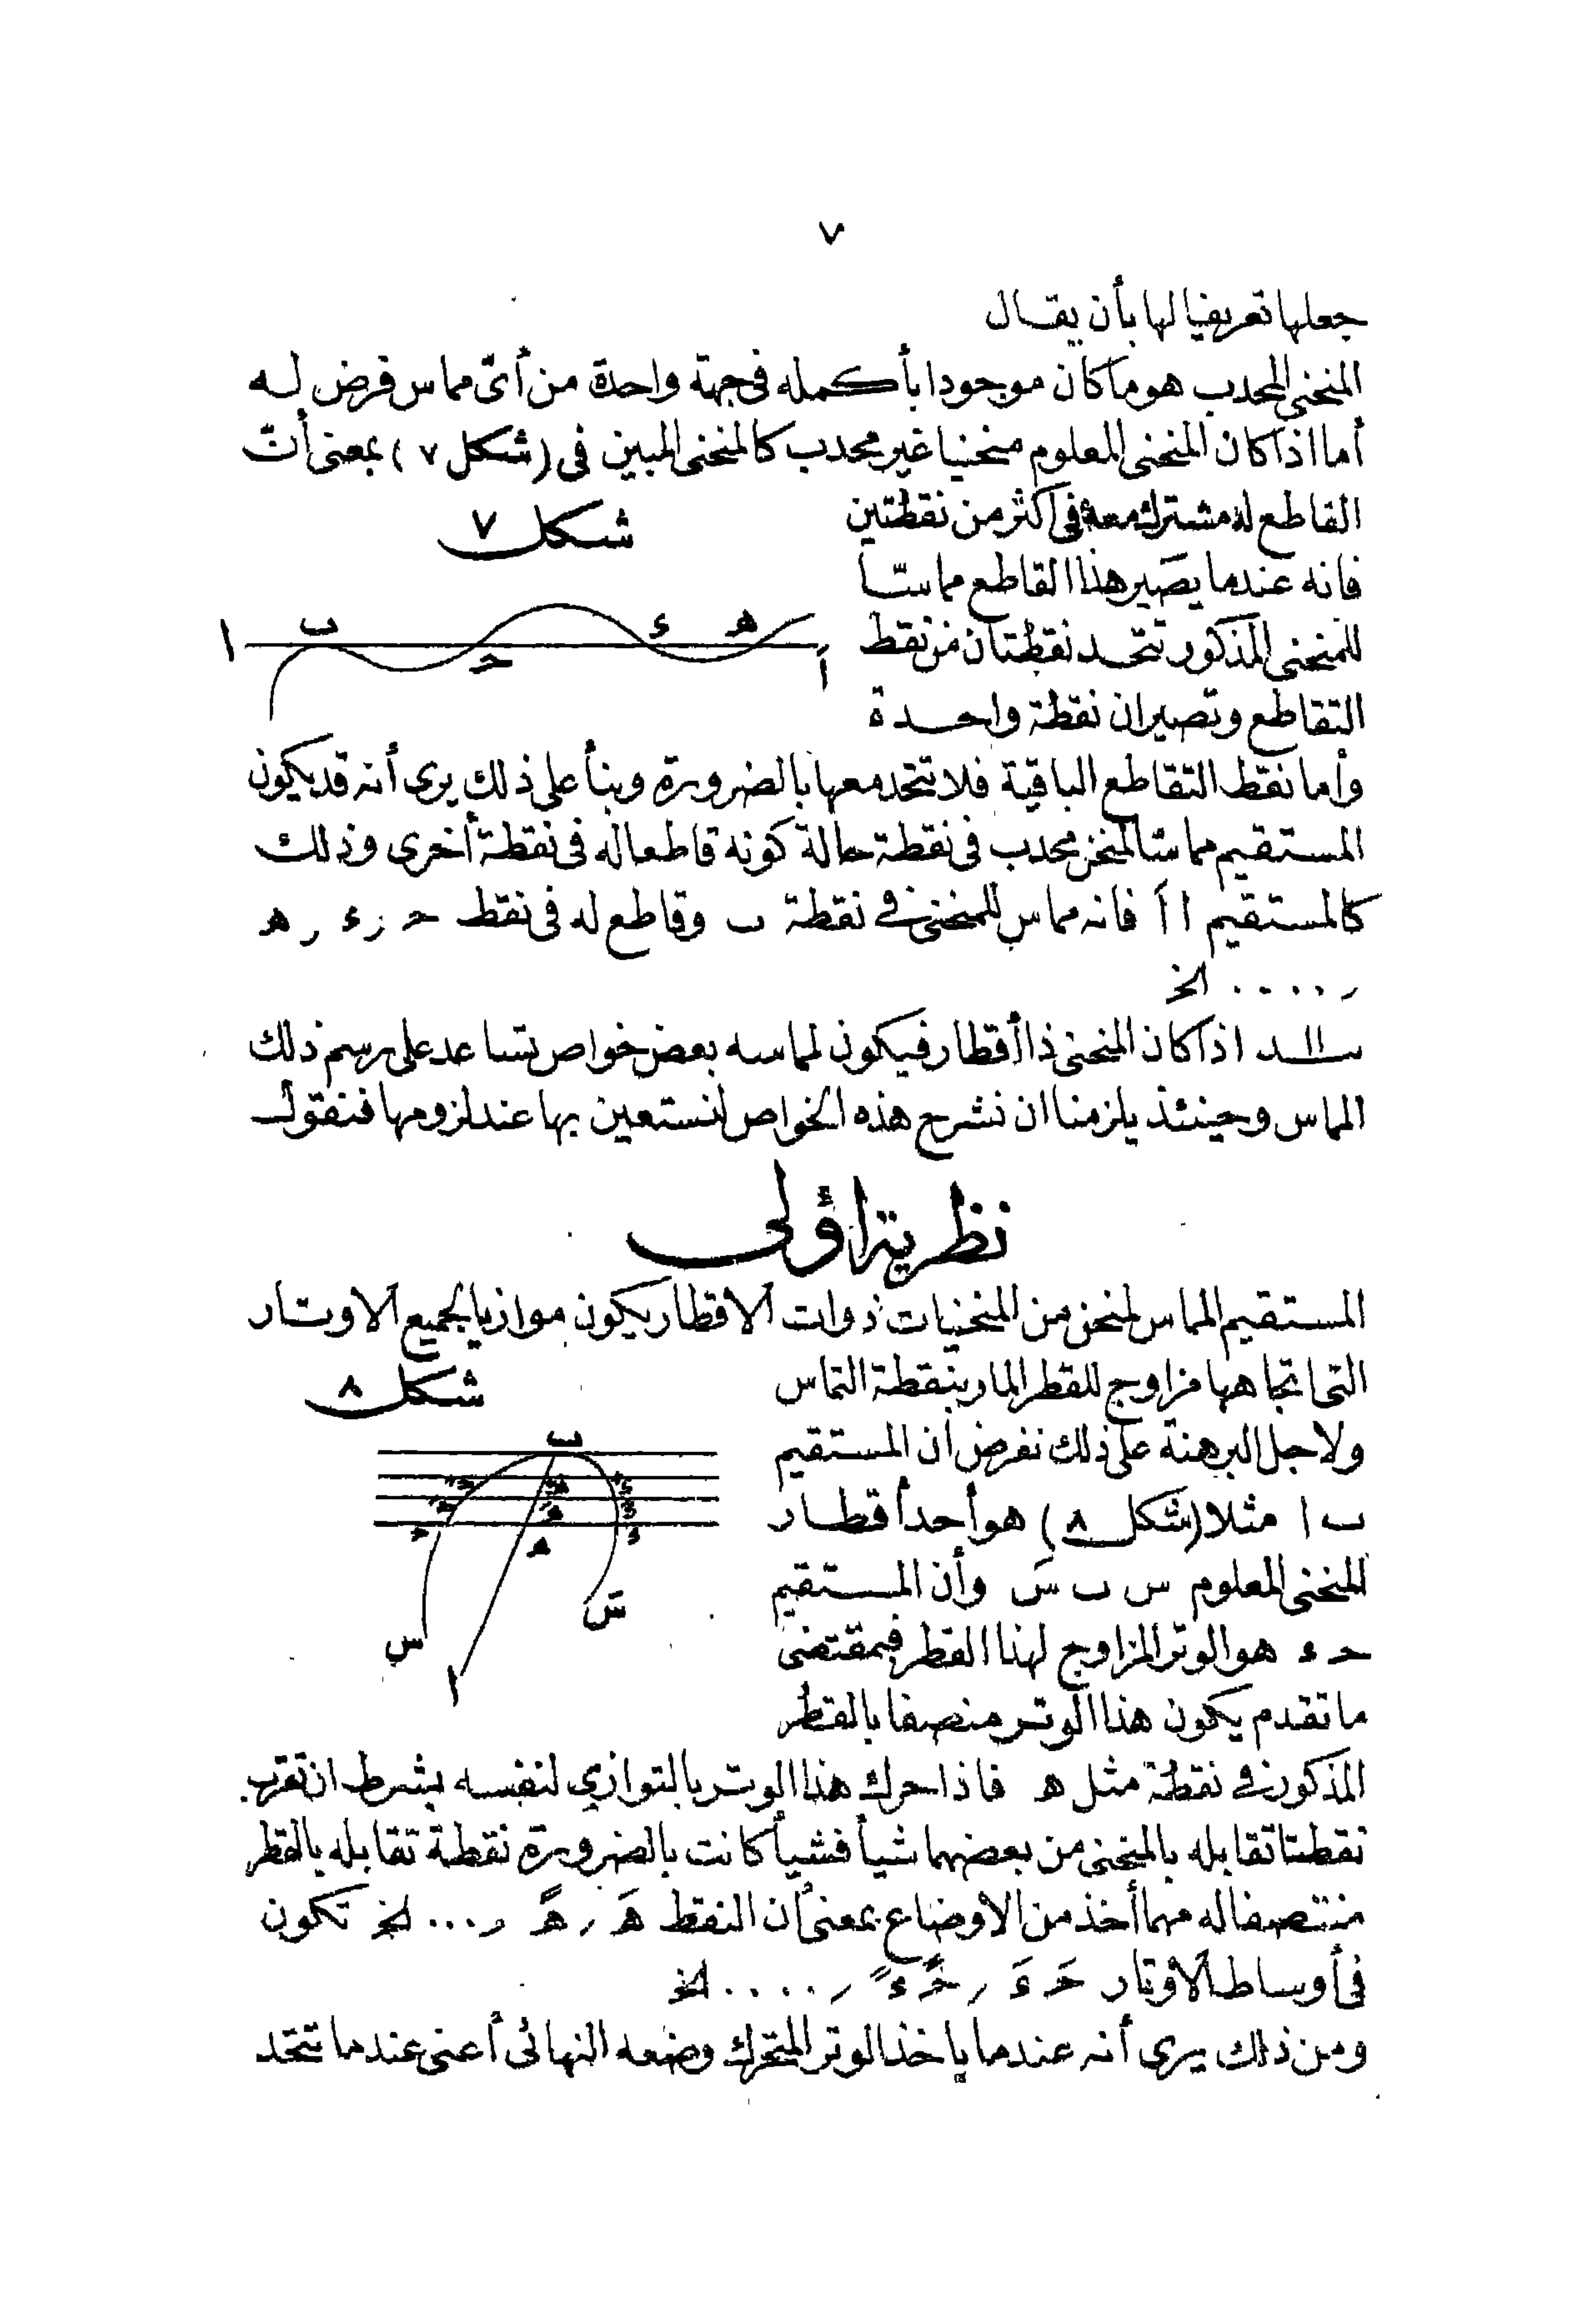 ٧
جعلها تعريفيا لها بأن يقال
المنحنى المحدب هو ما كان موجودا بأكمله فى جهة واحدة من أىّ مماس فرض له
أما اذا كان المنحنى المعلوم منحنيا غير محدب كالمنحنى المبين فى (شكل ٧) بمعنى أنّ
القاطع له مشترك معه فى اكثر من نقطتين
شكل ٧
فانه عندما يصير هذا القاطع مماسّا
ا ب حـ ء هـ اَ
للمنحنى المذكور تتحد نقطتان من نقط
التقاطع وتصيران نقطة واحدة
وأما نقط التقاطع الباقية فلا تتحد معها بالضرورة وبنأ على ذلك يرى أنه قد يكون
المستقيم مماسّا لمنحن محدب فى نقطة حالة كونه قاطعا له فى نقطة أخرى وذلك
كالمستقيم ا اَ فانه مماس للمنحنى فى نقطة ب وقاطع له فى نقط حـ ر ء ر هـ
ر .... الخ
اذا كان المنحنى ذا أقطار فيكون لمماسه بعض خواص تساعد على رسم ذلك
المماس وحينئذ يلزمنا ان نشرح هذه الخواص لنستعين بها عند لزومها فنقول
نظرية اؤلى
المستقيم المماس لمنحن من المنحنيات ذوات الاقطار يكون موازيا لجميع الاوتار
التى اتجاهها مزاوج للقطر المار بنقطة التماس
شكل ٨
ولاجل البرهنة على ذلك نفرض أن المستقيم
ب
ب ا مثلا (شكل ٨) هو أحد أقطار
حـ هـ ء
المنحنى المعلوم س ب سَ وأن المستقيم
س سَ
حـ ء هو الوتر المزاوج لهذا القطر فبمقتضى
ا
ما تقدم يكون هذا الوتر منصفا بالقطر
المذكور فى نقطة مثل هـ فاذا حرك هذا الوتر بالتوازى لنفسه بشرط ان تقرب
نقطتا تقابله بالمنحنى من بعضهما شيأ فشيأ كانت بالضرورة نقطة تقابله بالقطر
منتصفا له مهما أخذ من الاوضاع بمعنى أن النقط هـَ ر هـً ر ... الخ تكون
فى أوساط الأوتار حـَ ءَ ر حـً ءً ر .... الخ
ومن ذلك يرى أنه عندما ياخذ الوتر المتحرك وضعه النهائى أعنى عندما تتحد